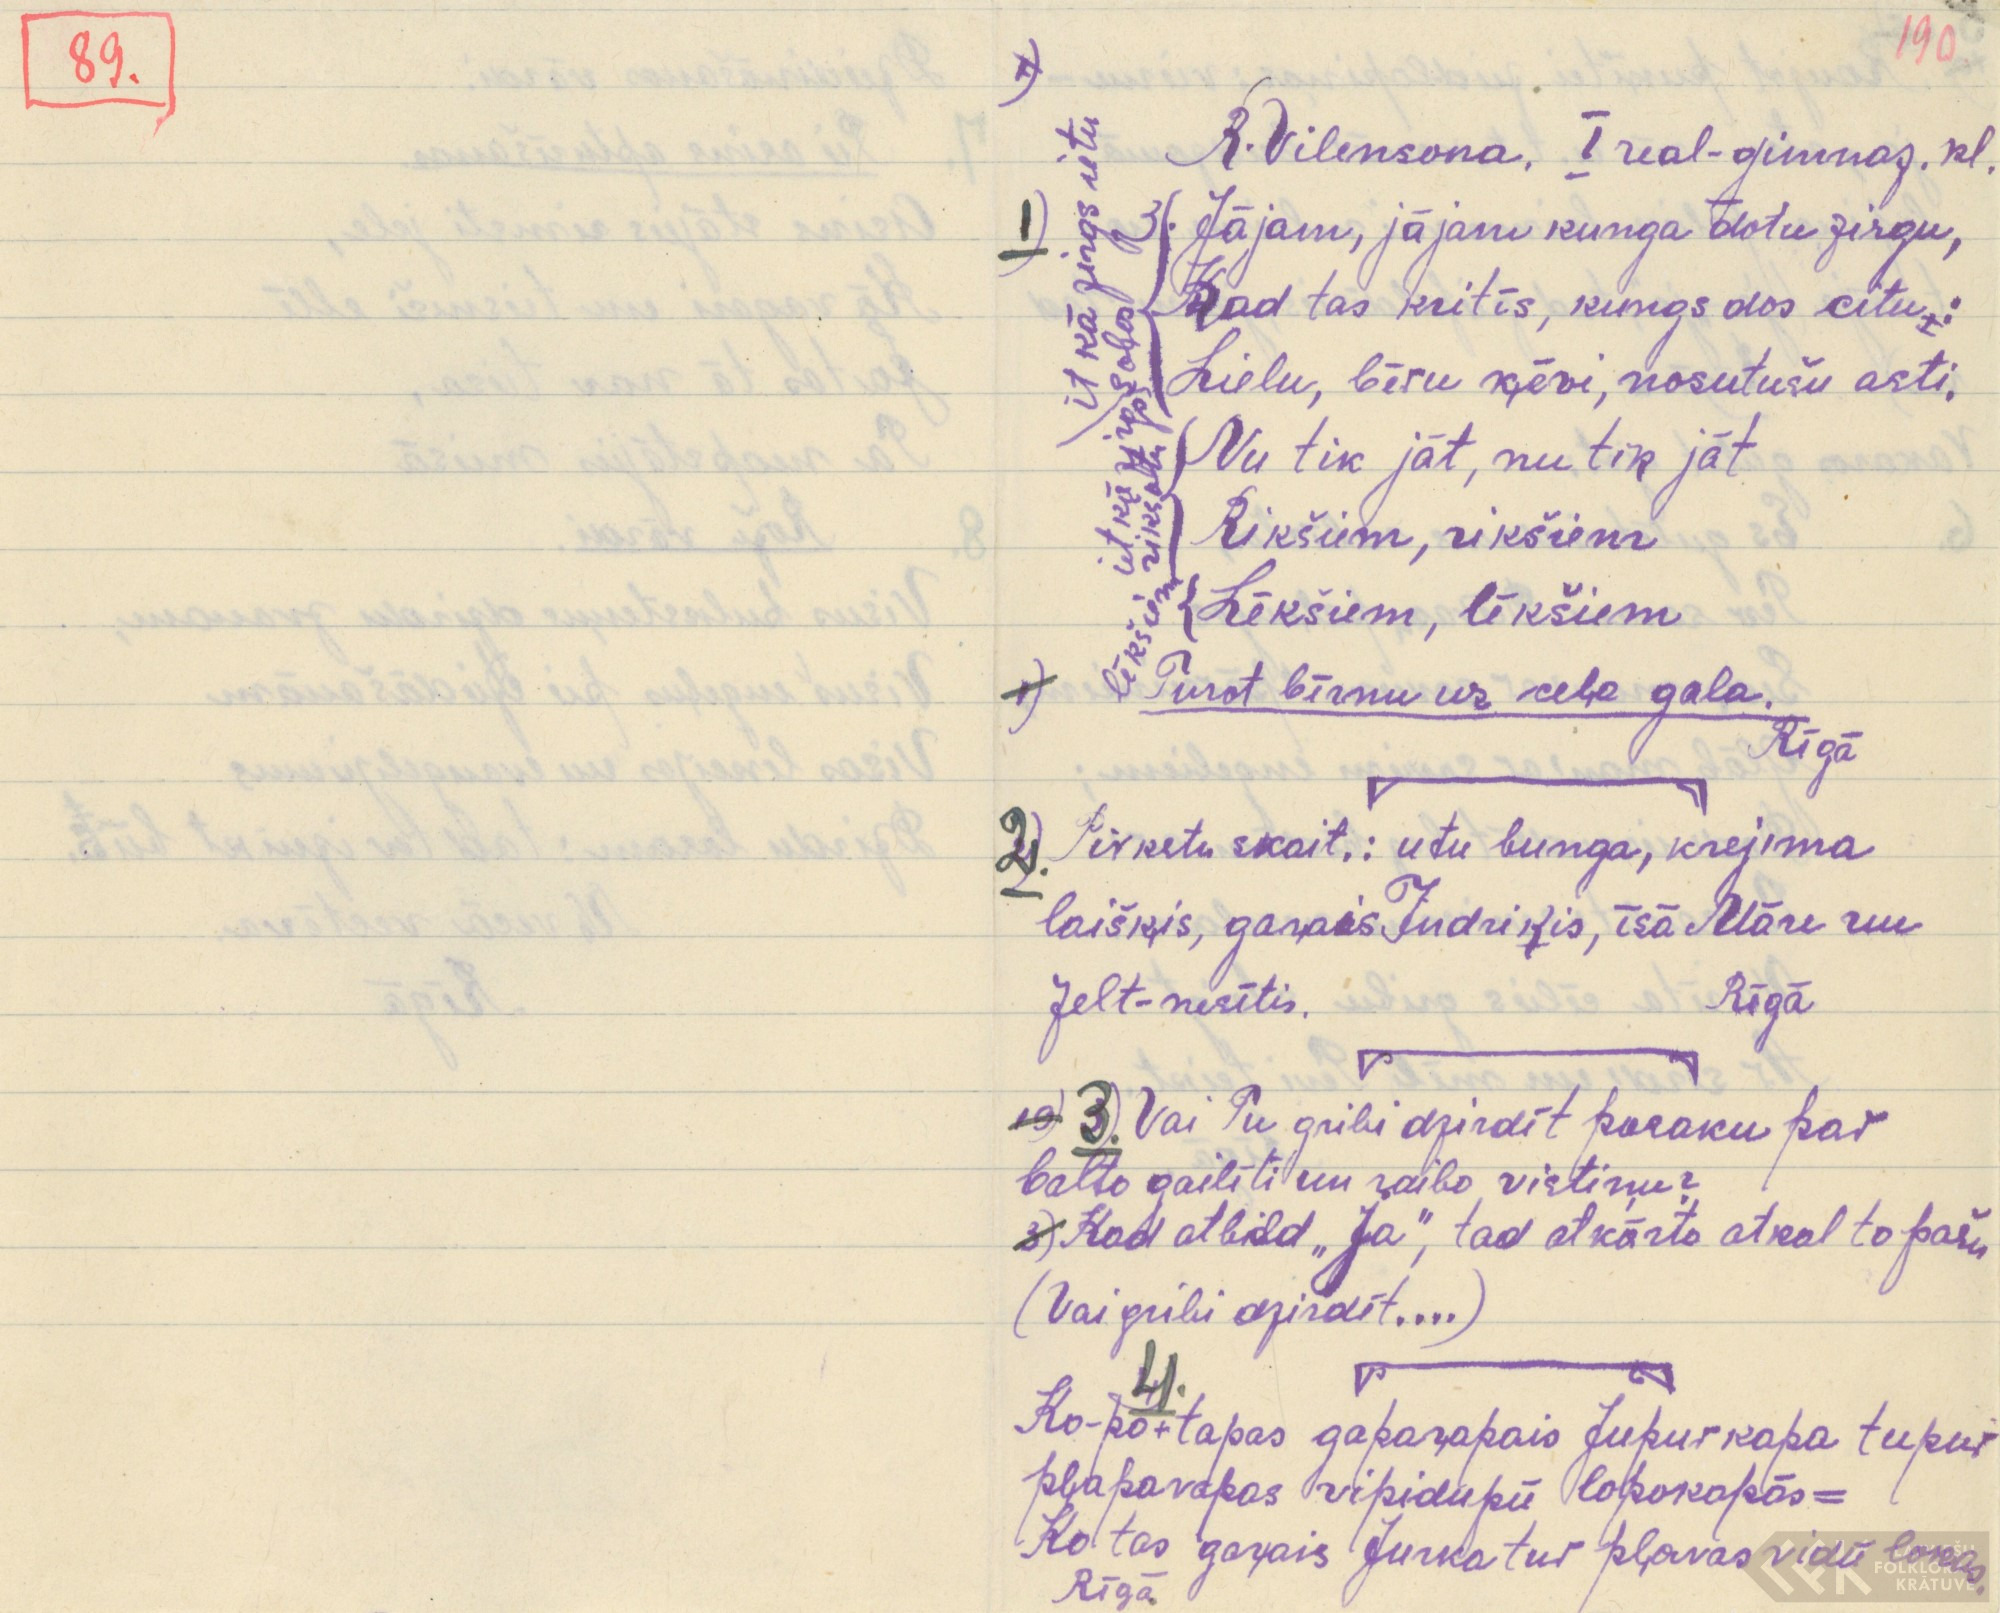 89.
190
R. Vilensona. I real-gimnaz. kl.
1) 3. Jājam, jājam kunga dotu zirgu,
Kad tas kritīs, kungs dos citu:
Lielu, bēru ķēvi, nosutušu asti.
Nu tik jāt, nu tik jāt
Rikšiem, rikšiem
Lēkšiem, lēkšiem
iet kā zirgs ietu
soļos
iet kā zirgs
rikšotu
lēkšiem
Turot bērnu uz ceļa gala.
Rīgā
2. Pirkstu skait.: utu bunga, krejma
laišķis, gaŗais Indriķis, īsā Māre un
zelt-nesītis. Rīgā
3. Vai Tu gribi dzirdēt pasaku par
balto gailīti un raibo vistiņu?
Kad atbild „Ja", tad atkārto atkal to pašu
(Vai gribi dzirdēt....)
4.
Ko-po-tapas gapaŗapais Jupurkapa tupur
pļapavapas vipidupū lopokapās=
Ko tas gaŗais Jurka tur pļavas vidū lokās.
Rīgā
FOLKLORAS
KRĀTUVE